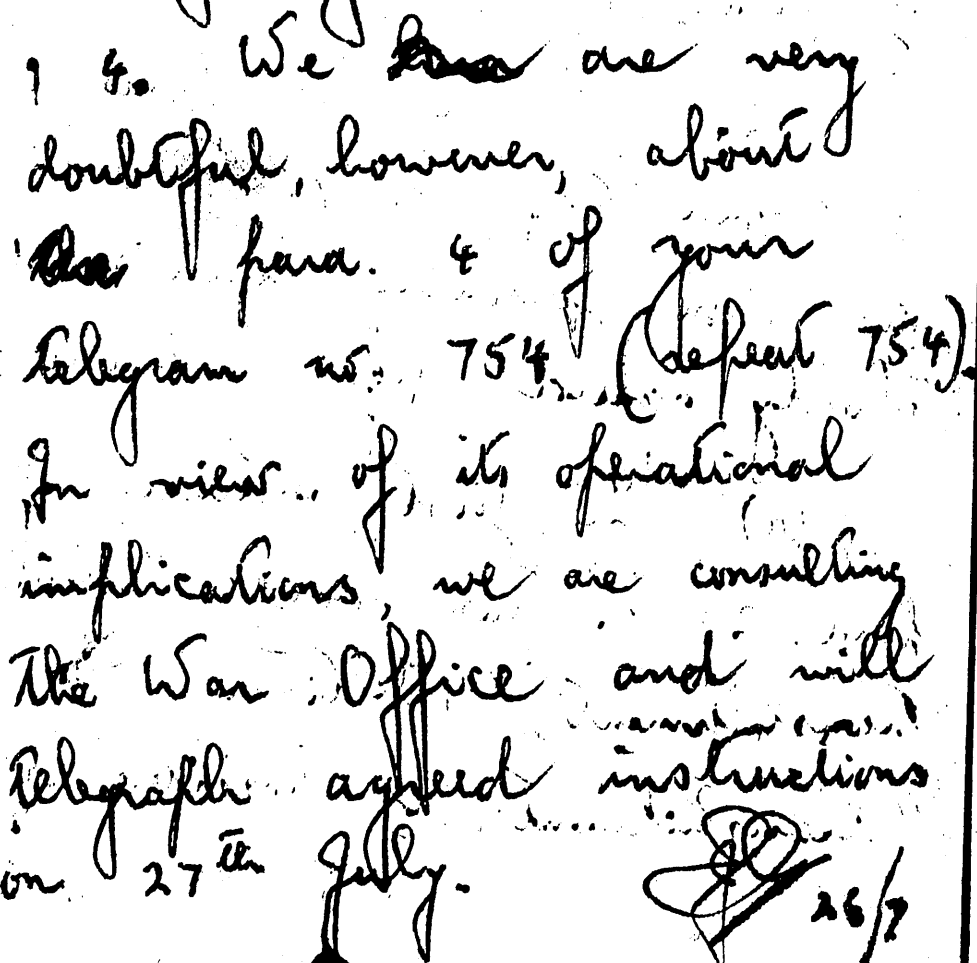 4. We are very
doubtful, however, about
para. 4 of your
telegram no. 754 (repeat 754).
In view of its operational
implications, we are consulting
the War Office and will
telegraph agreed instructions
on 27th July.
26/7